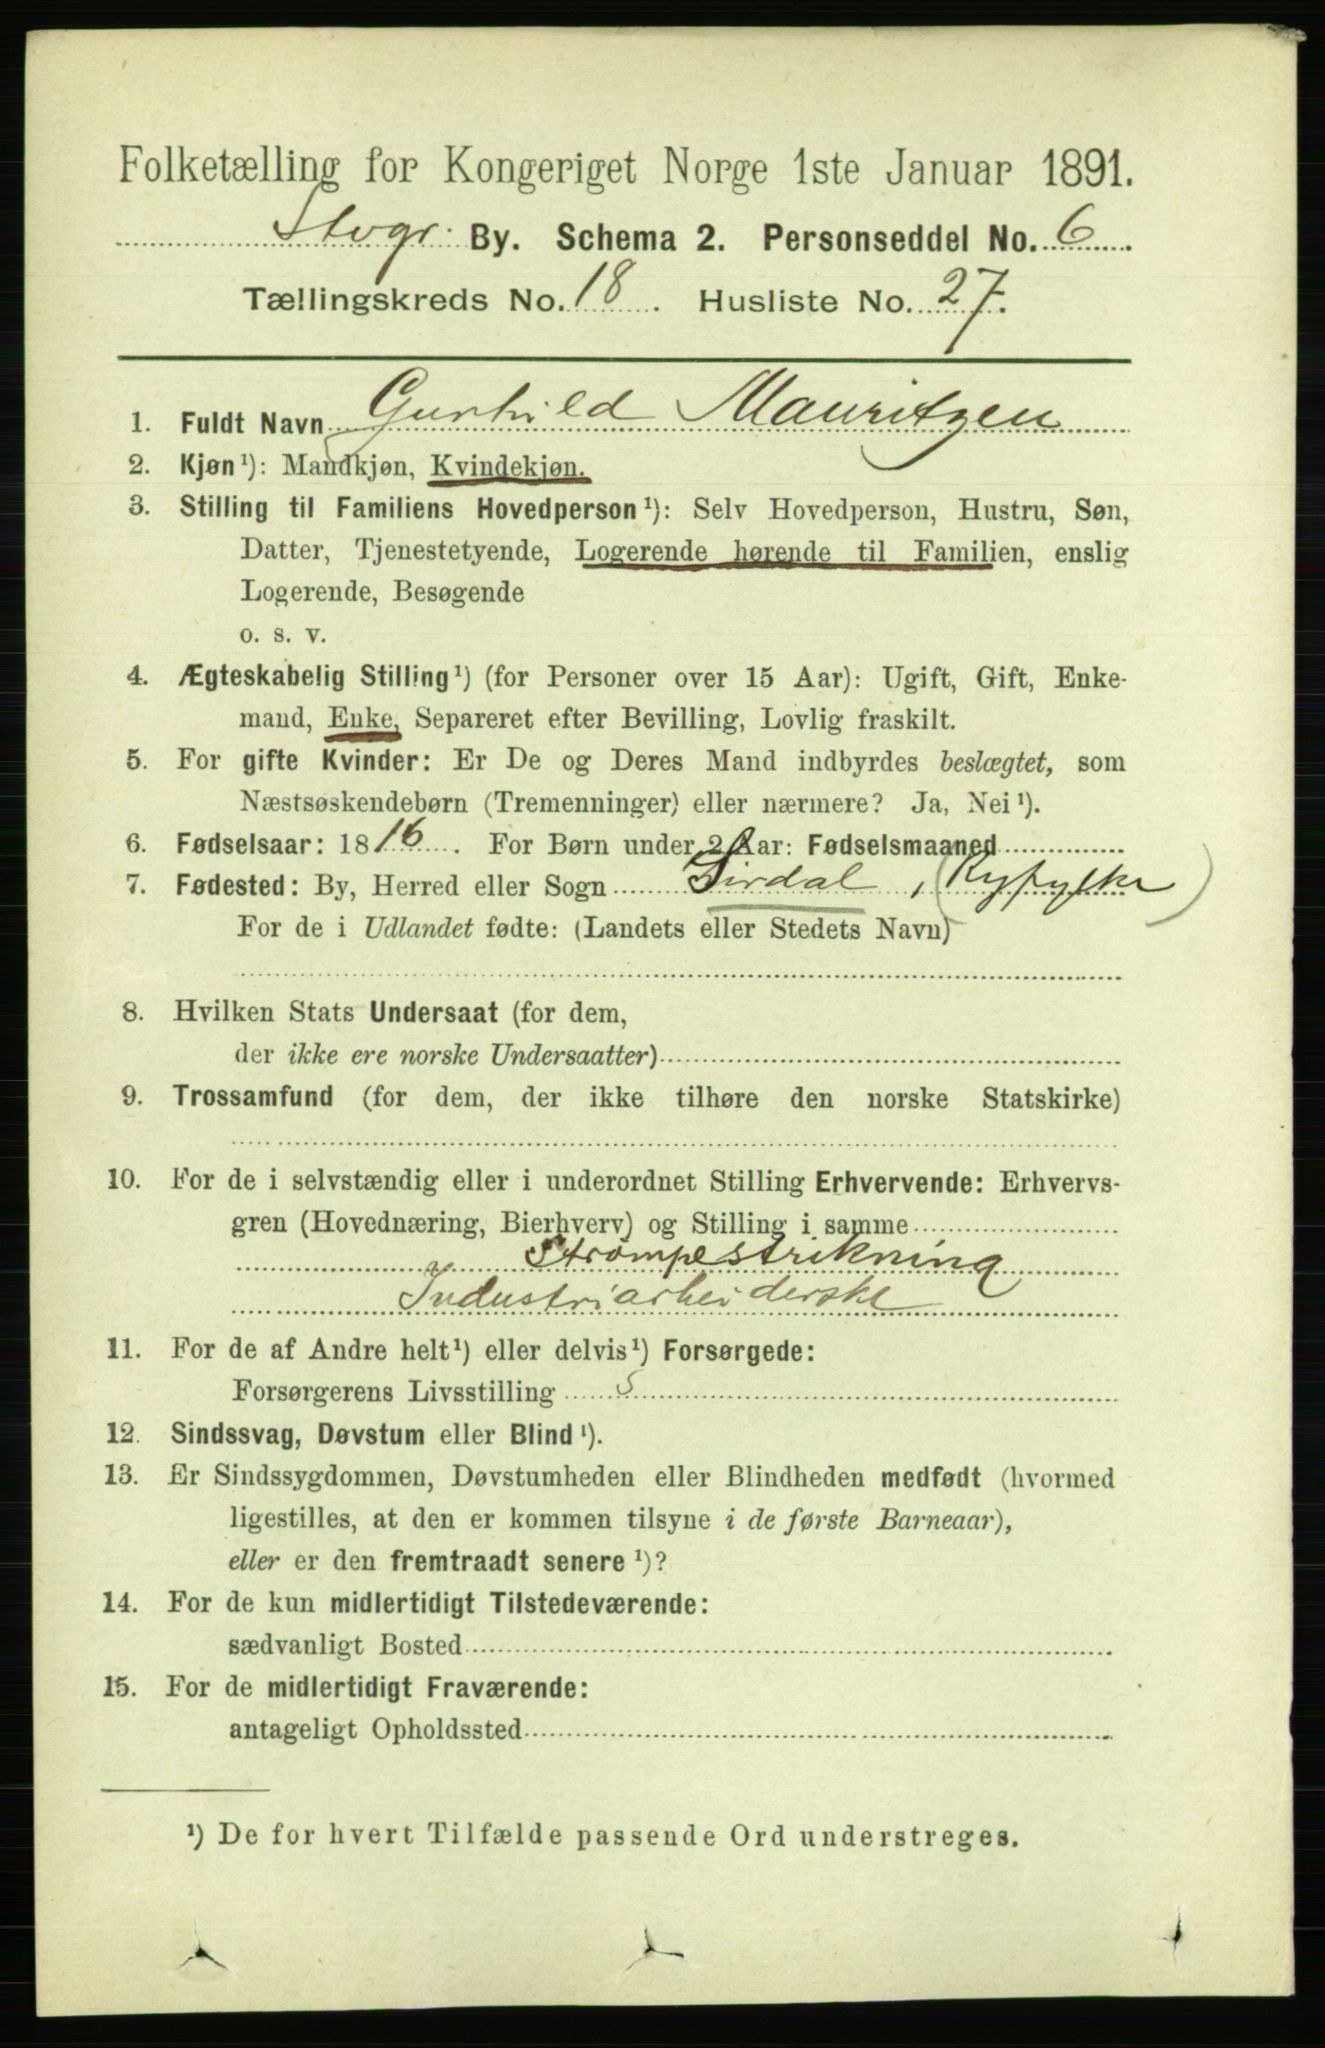 Folketælling for Kongeriget Norge 1ste Januar 1891.
Stvgr. By. Schema 2. Personseddel No. 6.
Tællingskreds No. 18. Husliste No. 27.
1. Fuldt Navn Gunhild Mauritzen
2. Kjøn¹): Mandkjøn, Kvindekjøn.
3. Stilling til Familiens Hovedperson¹): Selv Hovedperson, Hustru, Søn,
Datter, Tjenestetyende, Logerende hørende til Familien, enslig
Logerende, Besøgende
o. s. v.
4. Ægteskabelig Stilling¹) (for Personer over 15 Aar): Ugift, Gift, Enke-
mand, Enke, Separeret efter Bevilling, Lovlig fraskilt.
5. For gifte Kvinder: Er De og Deres Mand indbyrdes beslægtet, som
Næstsøskendebørn (Tremenninger) eller nærmere? Ja, Nei¹).
6. Fødselsaar: 1816. For Børn under 2 Aar: Fødselsmaaned
7. Fødested: By, Herred eller Sogn Sirdal, (Ryfylke)
For de i Udlandet fødte: (Landets eller Stedets Navn)
8. Hvilken Stats Undersaat (for dem,
der ikke ere norske Undersaatter)
9. Trossamfund (for dem, der ikke tilhøre den norske Statskirke)
10. For de i selvstændig eller i underordnet Stilling Erhvervende: Erhvervs-
gren (Hovednæring, Bierhverv) og Stilling i samme
Strømpestrikning
Industriarbeiderske
11. For de af Andre helt¹) eller delvis¹) Forsørgede:
Forsørgerens Livsstilling
12. Sindssvag, Døvstum eller Blind¹).
13. Er Sindssygdommen, Døvstumheden eller Blindheden medfødt (hvormed
ligestilles, at den er kommen tilsyne i de første Barneaar),
eller er den fremtraadt senere¹)?
14. For de kun midlertidigt Tilstedeværende:
sædvanligt Bosted
15. For de midlertidigt Fraværende:
antageligt Opholdssted
¹) De for hvert Tilfælde passende Ord understreges.